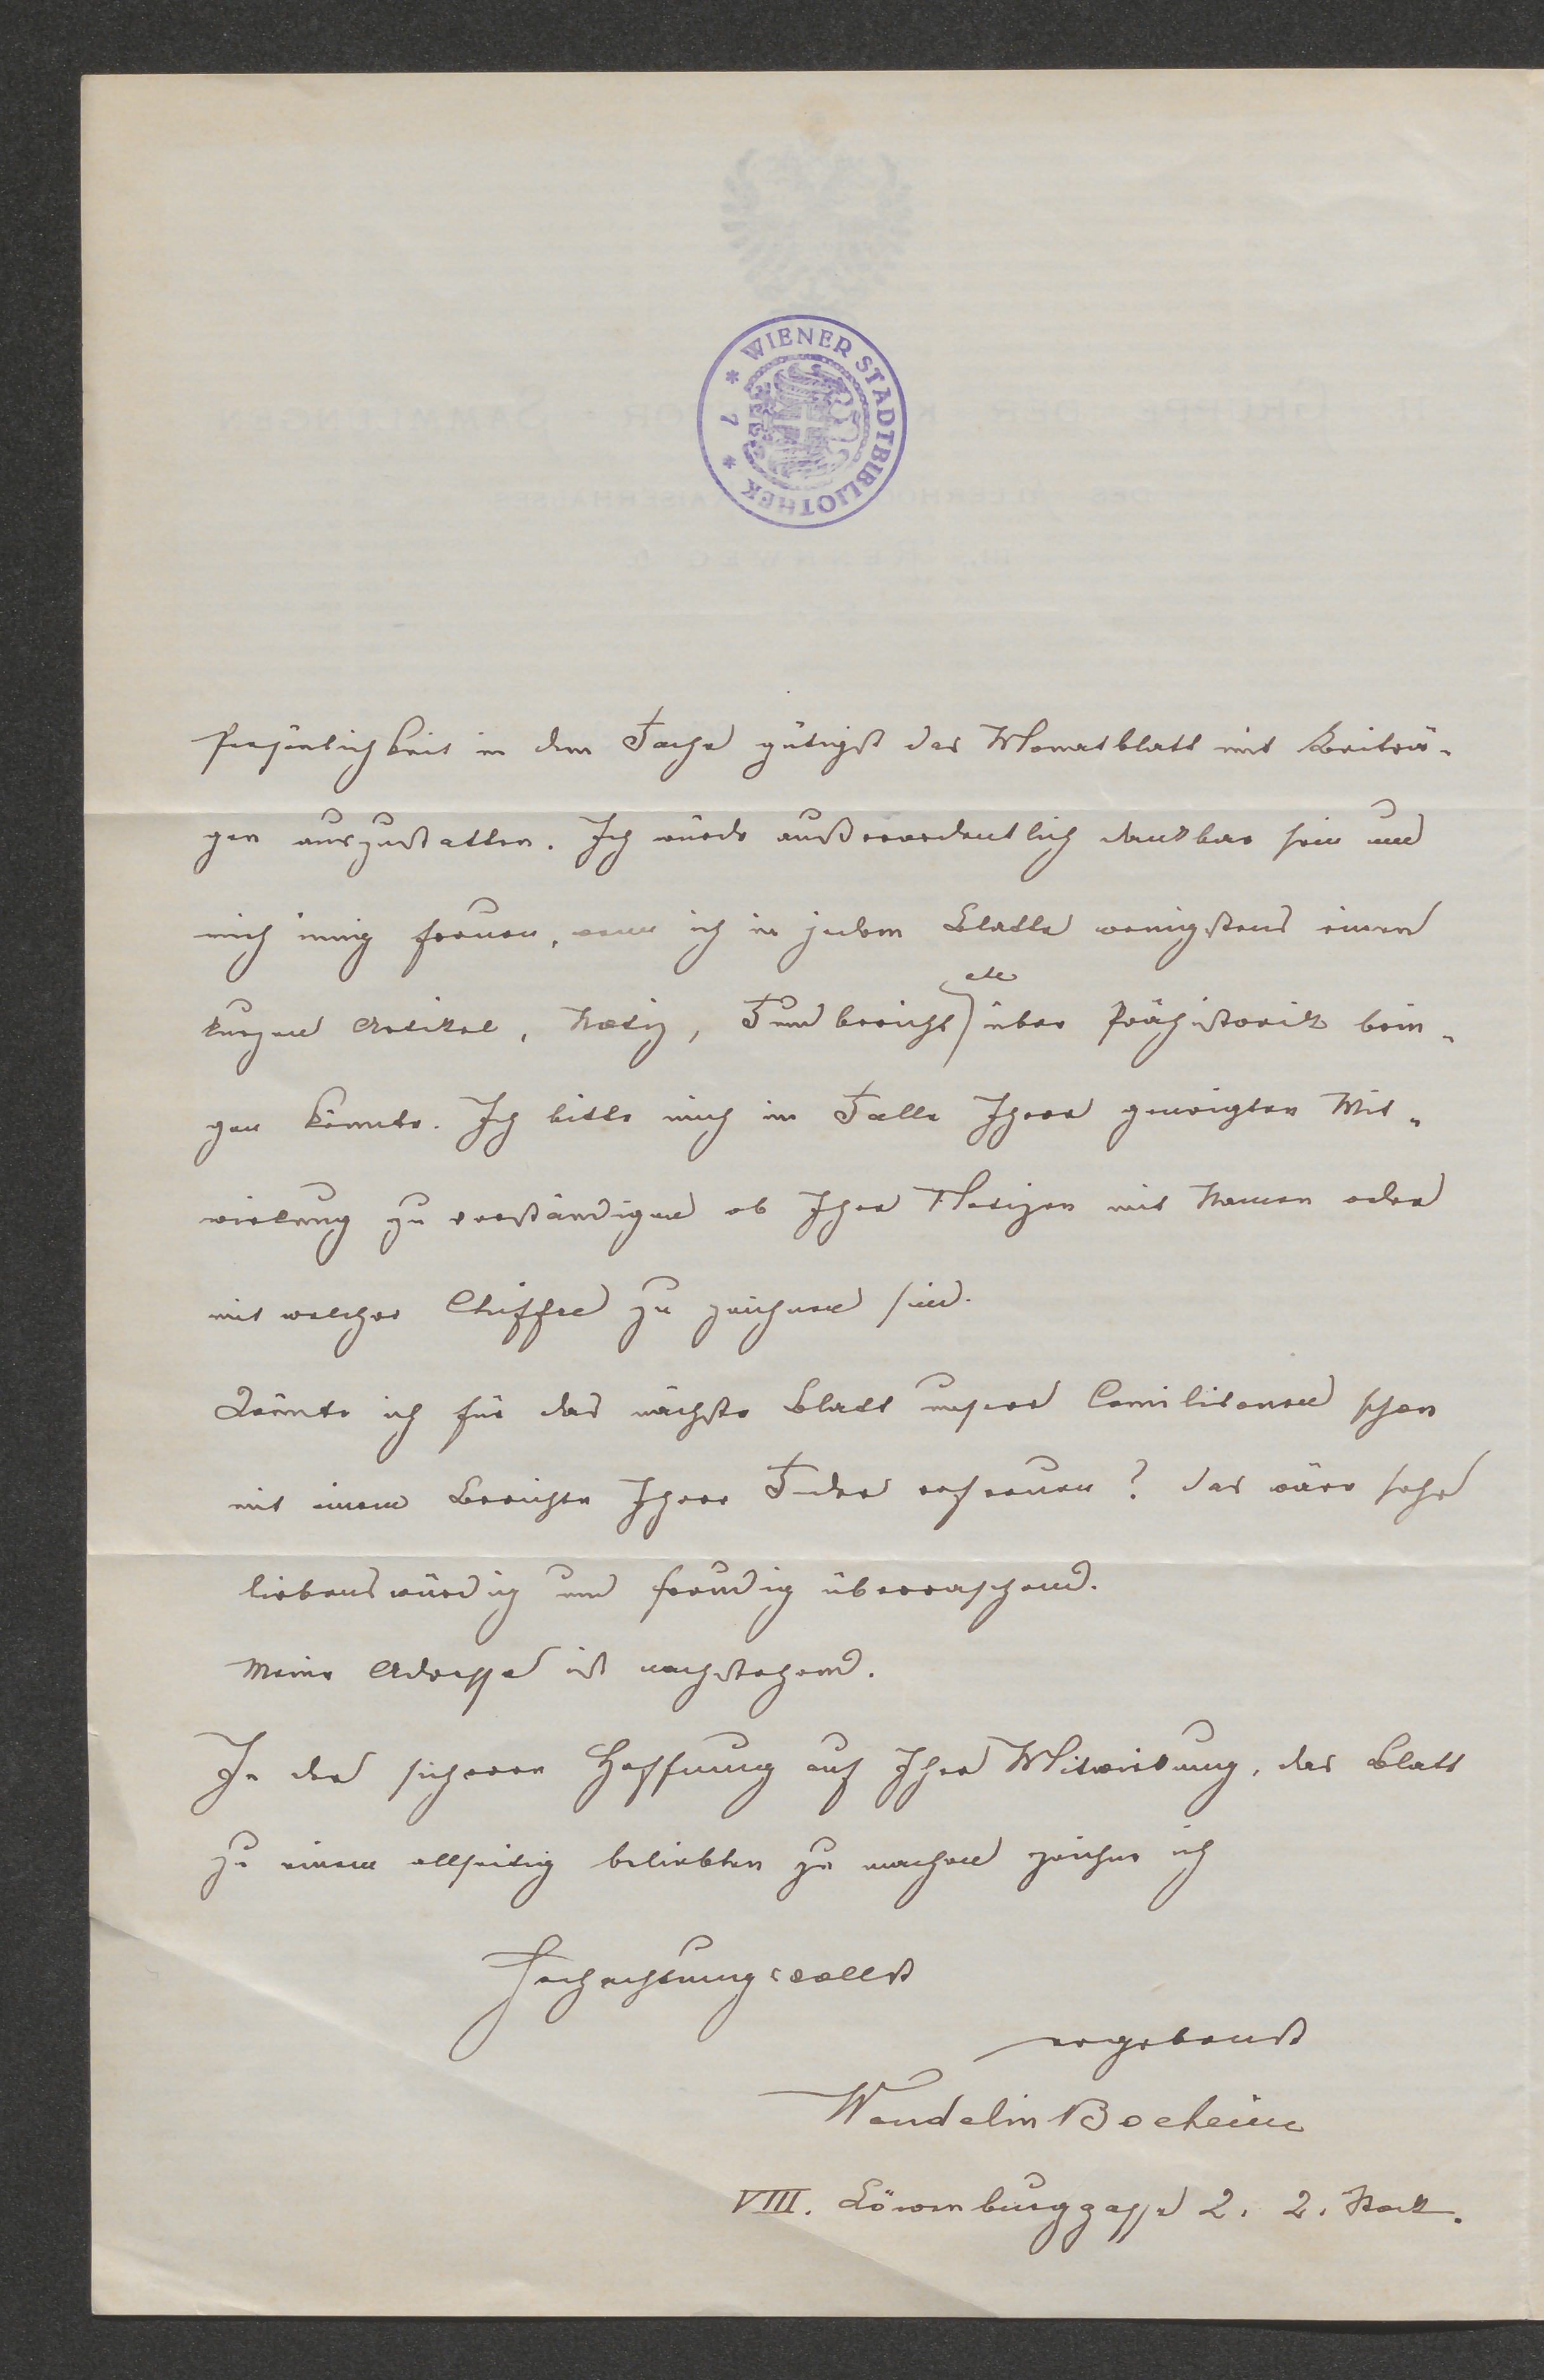 WIENER STADTBIBLIOTHEK
* 7 *
Persönlichkeit in dem Fache gütigst das Monatblatt mit Beiträ-
gen auszustatten. Ich würde außerordentlich dankbar sein und
mich innig freuen, wenn ich in jedem Blatte wenigstens einen
kurzen Artikel, Notiz, Fundbericht etc über Prähistorik brin-
gen könnte. Ich bitte mich im Falle Ihrer geneigten Mit-
wirkung zu verständigen ob Ihre Notizen mit Namen oder
mit welcher Chiffre zu zeichnen sind.
Könnte ich für das nächste Blatt unsere Comilitonen schon
mit einem Berichte Ihrer Feder erfreuen? das wäre sehr
liebenswürdig und freudig überraschend.
Meine Adresse ist nachstehend.
In der sicheren Hoffnung auf Ihre Mitwirkung, das Blatt
zu einem allseitig beliebten zu machen zeichne ich
Hochachtungsvollst
ergebenst
Wendelin Boeheim
VIII. Löwenburggasse 2. 2. Stock.